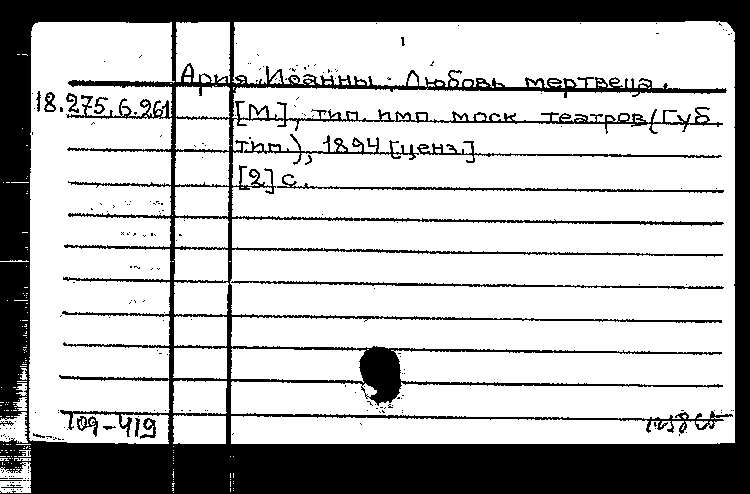 1
Ария Иоанны. Любовь мертвеца.
18.275.6.261 [М.], тип. имп. моск. театров (Губ.
тип.), 1894 [ценз.]
[2] с.
109-419